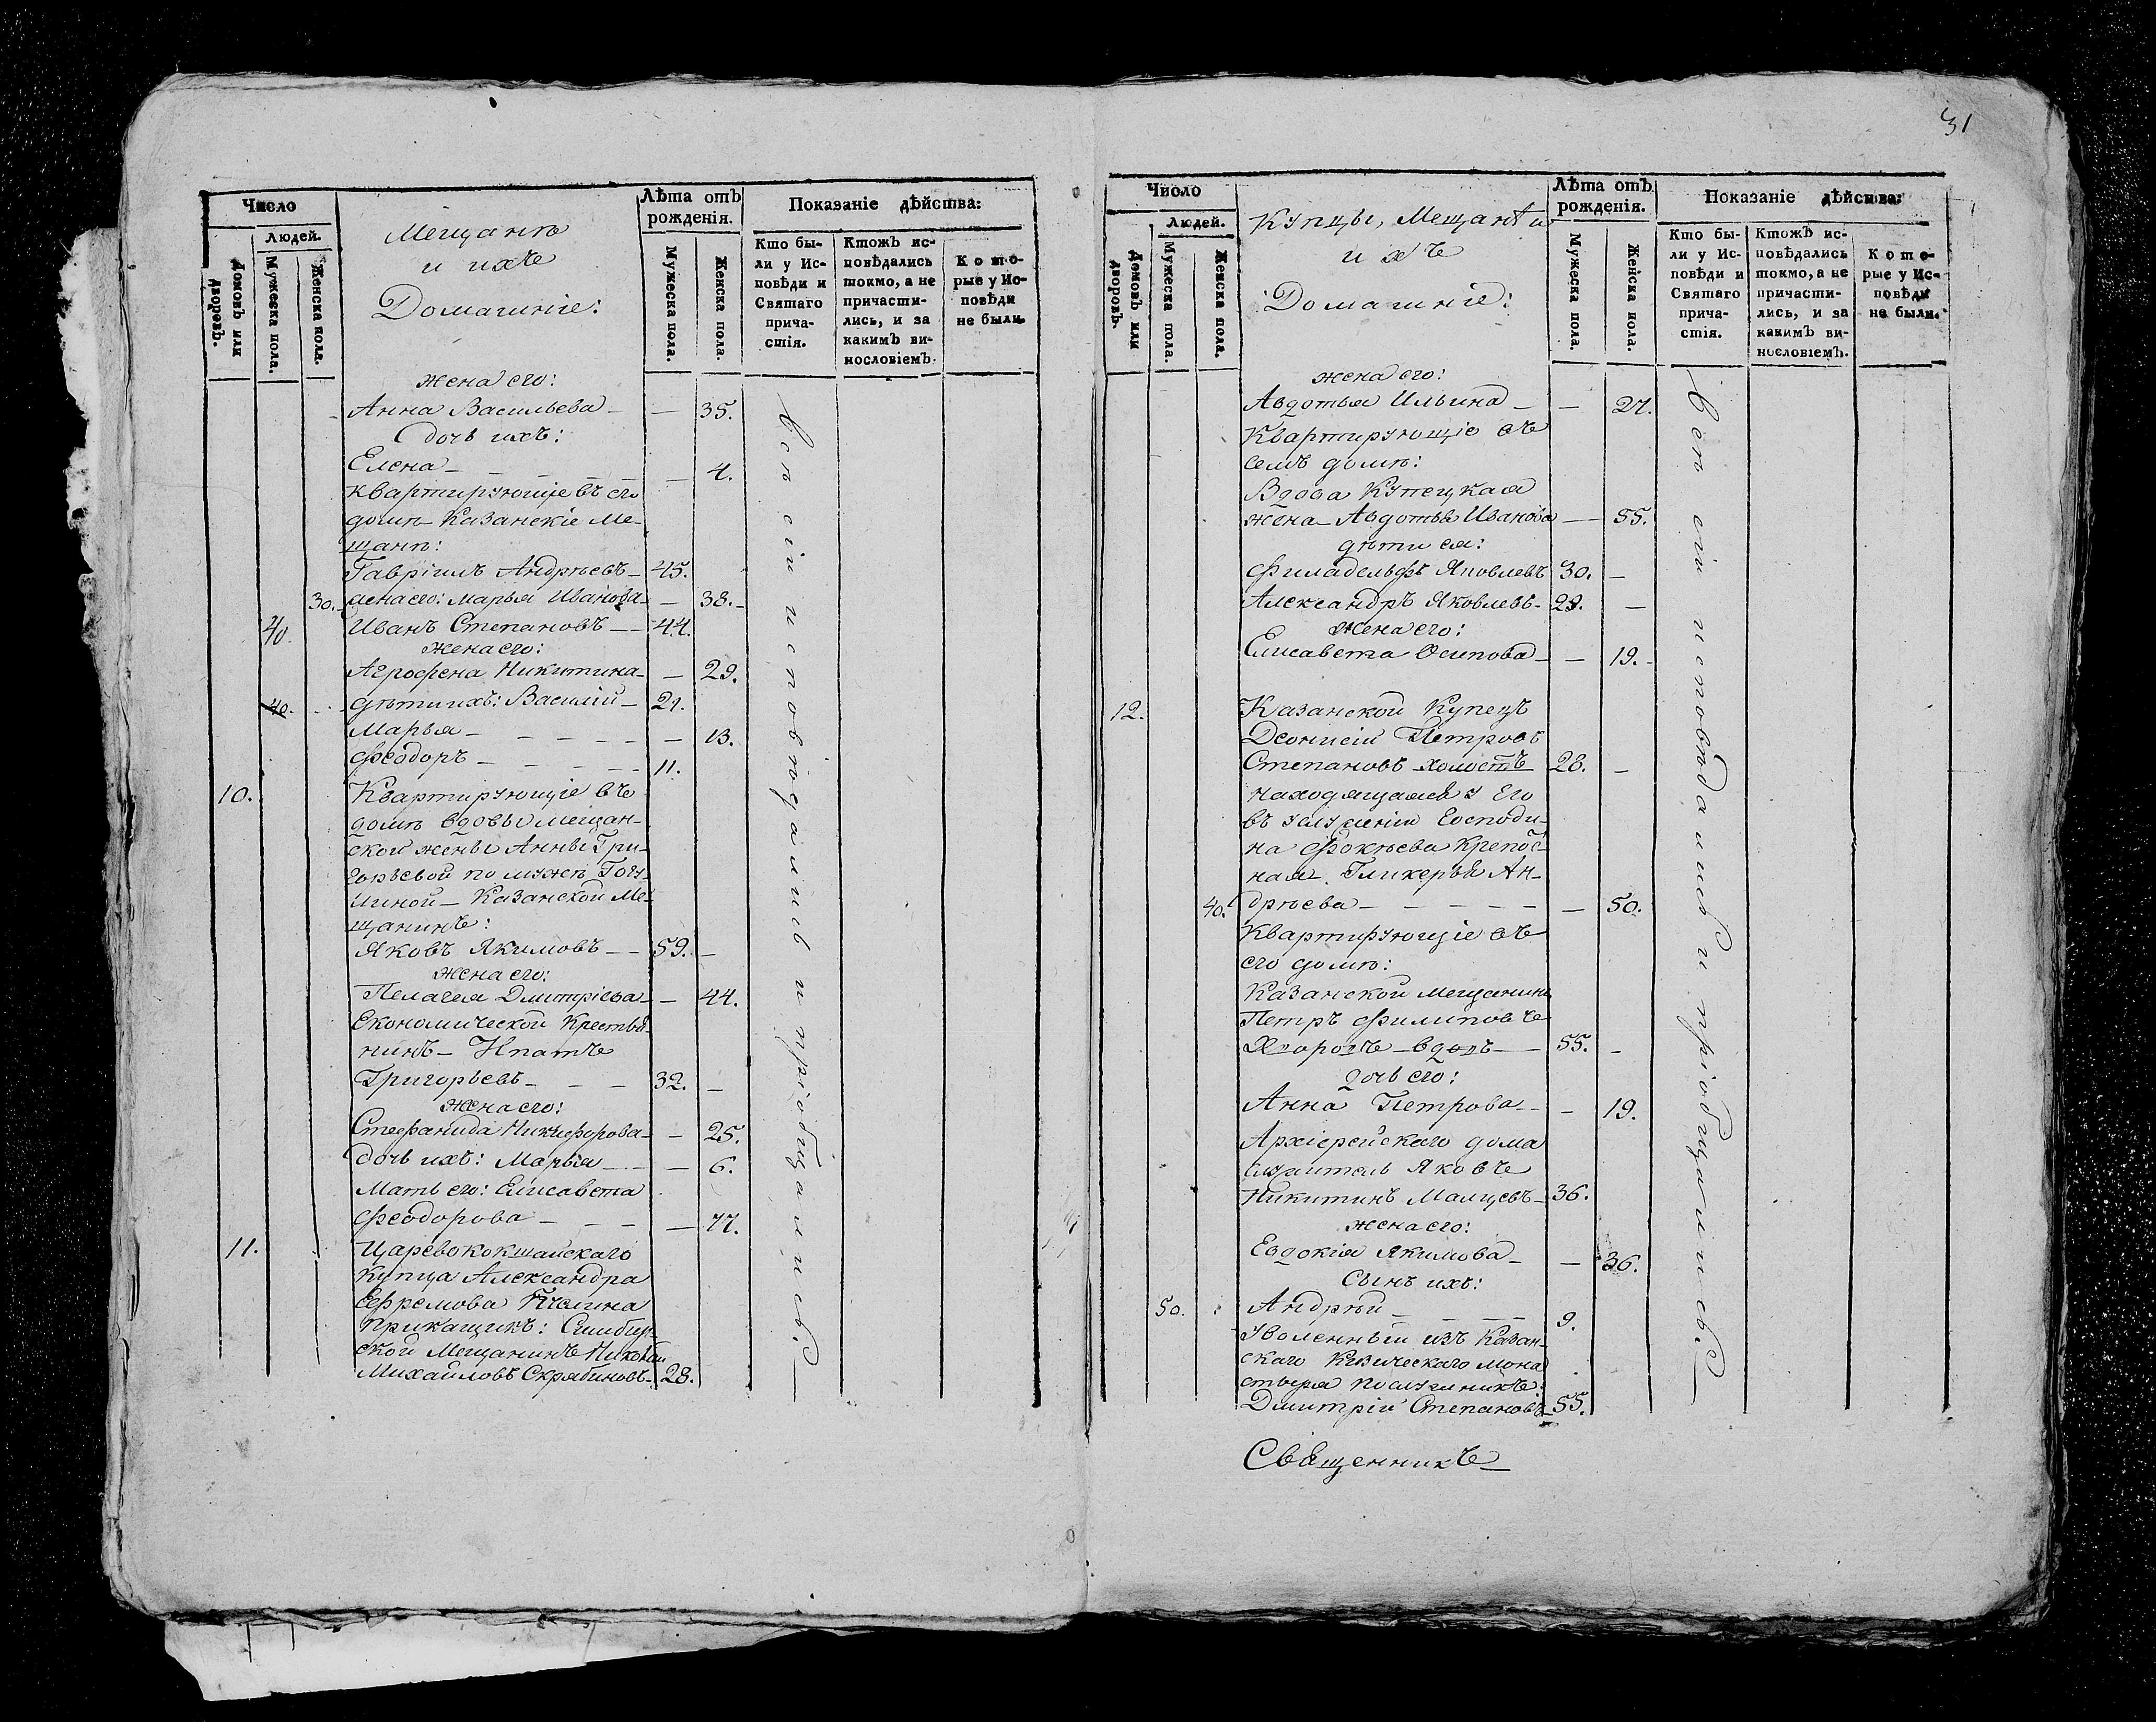 31
Число
Людей.
Домовъ или дворовъ.
Мужеска пола.
Женска пола.
Мещанѣ
и ихъ
Домашніе:
Лѣта отъ
рожденія.
Мужеска пола.
Женска пола.
Показаніе дѣйства:
Кто бы-
ли у Ис-
повѣди и
Святаго
прича-
стія.
Ктожъ ис-
повѣдались
токмо, а не
причасти-
лись, и за
какимъ ви-
нословіемъ.
Кото-
рые у Ис-
повѣди
не были.
жена его:
Анна Васильева — — 35.
дочь ихъ:
Елена — — — — 4.
квартирующіе въ его
домѣ Казанскіе Ме-
щанѣ:
Гавріилъ Андрѣевъ — 45.
30. жена его: Марья Иванова — — 38.
40. Иванъ Степановъ — 44.
жена его:
Агрофена Никитина — — 29.
40. дѣти ихъ: Василій — 21.
Марья — — — — — 13.
Феодоръ — — — — 11.
10. Квартирующіе въ
домѣ вдовы мещан-
ской жены Анны Гри-
горьевой по мужѣ
Казанской Ме-
щанинъ:
Яковъ Якимовъ — — 59. —
жена его:
Пелагея Дмитріева — — 44.
Економической Крестья-
нинъ — Ипатъ
Григорьевъ — — — 32. —
жена его:
Стефанида Никифорова — — 25.
дочь ихъ: Марья — — — 6.
Мать его: Елисавета
Феодорова — — — — 77.
11. Царевококшайскаго
Купца Александра
Ефремова Пчелина
Прикащикъ: Симбир-
ской Мещанинъ Николай
Михайловъ Скрябиновъ — 28.
всѣ сіи исповѣдались и пріобщались.
Число
Людей.
Домовъ или дворовъ.
Мужеска пола.
Женска пола.
Купцы, Мещанѣ и
ихъ
Домашніе:
Лѣта отъ
рожденія.
Мужеска пола.
Женска пола.
Показаніе дѣйства:
Кто бы-
ли у Ис-
повѣди и
Святаго
прича-
стія.
Ктожъ ис-
повѣдались
токмо, а не
причасти-
лись, и за
какимъ ви-
нословіемъ.
Кото-
рые у Ис-
повѣди
не были.
жена его:
Авдотья Ильина — — 27.
Квартирующіе въ
семъ домѣ:
Вдова Купецкая
жена Авдотья Иванова — — 55.
дѣти ея:
Филадельфъ Яковлевъ 30. —
Александръ Яковлевъ — 29. —
жена его:
Елисавета Осипова — — 19.
12. Казанской Купецъ
Деонисій Петровъ
Степановъ холостъ 28. —
находящаяся у Его
въ услуженіи Господи-
на Фокѣева Крепос-
ная Гликерья Ан-
40. дрѣева — — — — — — 50.
Квартирующіе въ
его домѣ:
Казанской мещанинъ
Петръ Филиповъ
вдовъ — 55. —
дочь его:
Анна Петрова — — 19.
Архіерейскаго дома
служитель Яковъ
Никитинъ Малцевъ — 36.
жена его:
Евдокія Якимова — — 36.
Сынъ ихъ:
50. Андрѣй — — — — 9.
Уволенный изъ Казан-
скаго Кизическаго мона
стыря послушникъ:
Дмитрій Степановъ — 55.
всѣ сіи исповѣдались и пріобщались.
Священникъ